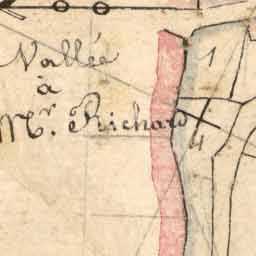 Vallée
à
Mr. Richard
1
4